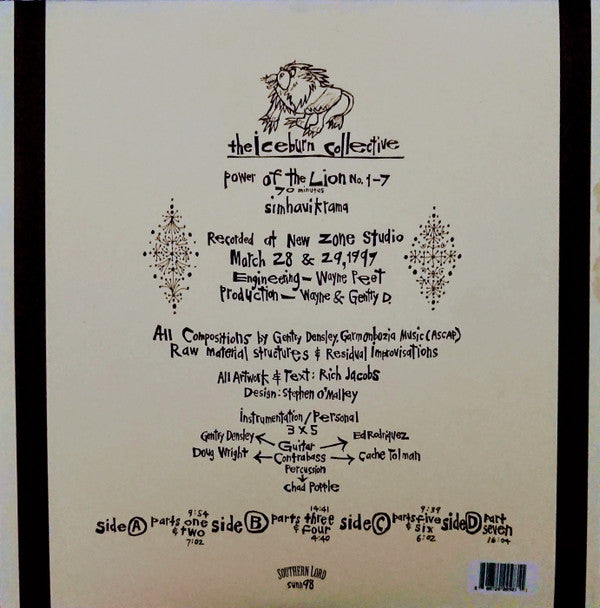 the iceburn collective
Power of the Lion No. 1-7
70 minutes
simhavikrama
Recorded at New Zone Studio
March 28 & 29, 1997
Engineering - Wayne Peet
Production - Wayne & Gentry D.
All Compositions by Gentry Densley, Garmonbozia Music (ASCAP)
Raw material structures & Residual Improvisations
All Artwork & Text: Rich Jacobs
Design: Stephen O'Malley
Instrumentation/Personal
3 x 5
Gentry Densley Guitar Ed Rodriguez
Doug Wright Contrabass Cache Tolman
Percussion
Chad Popple
side A parts one & two 9:54 7:02
side B parts three & four 14:41 4:40
side C parts five & six 9:39 6:02
side D part seven 16:04
SOUTHERN LORD
sunn98